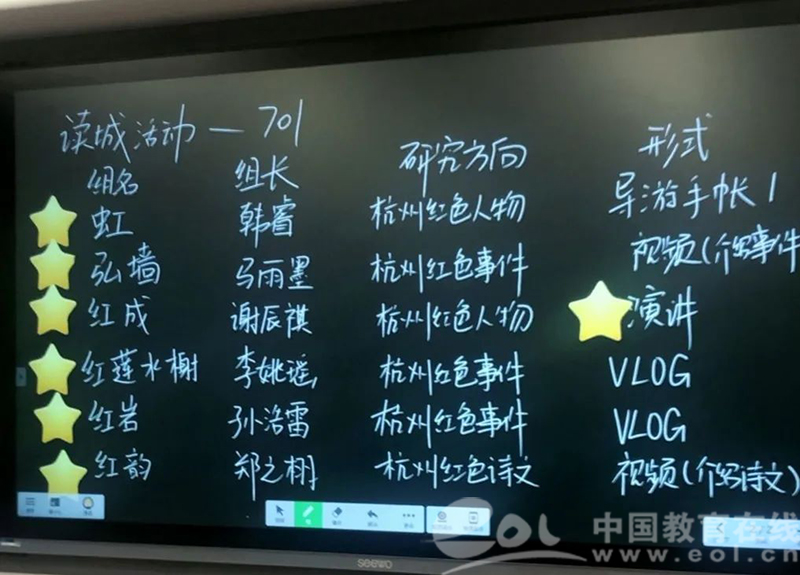 读城活动 — 701
组名 组长 研究方向 形式
虹 韩睿 杭州红色人物 导游手帐1
弘墙 马雨墨 杭州红色事件 视频(介绍事件
红成 谢辰祺 杭州红色人物 演讲
红莲水榭 李姚瑶 杭州红色事件 VLOG
红岩 孙洺雷 杭州红色事件 VLOG
红韵 郑之栩 杭州红色诗文 视频(介绍诗文)
seewo
eol 中国教育在线
www.eol.cn